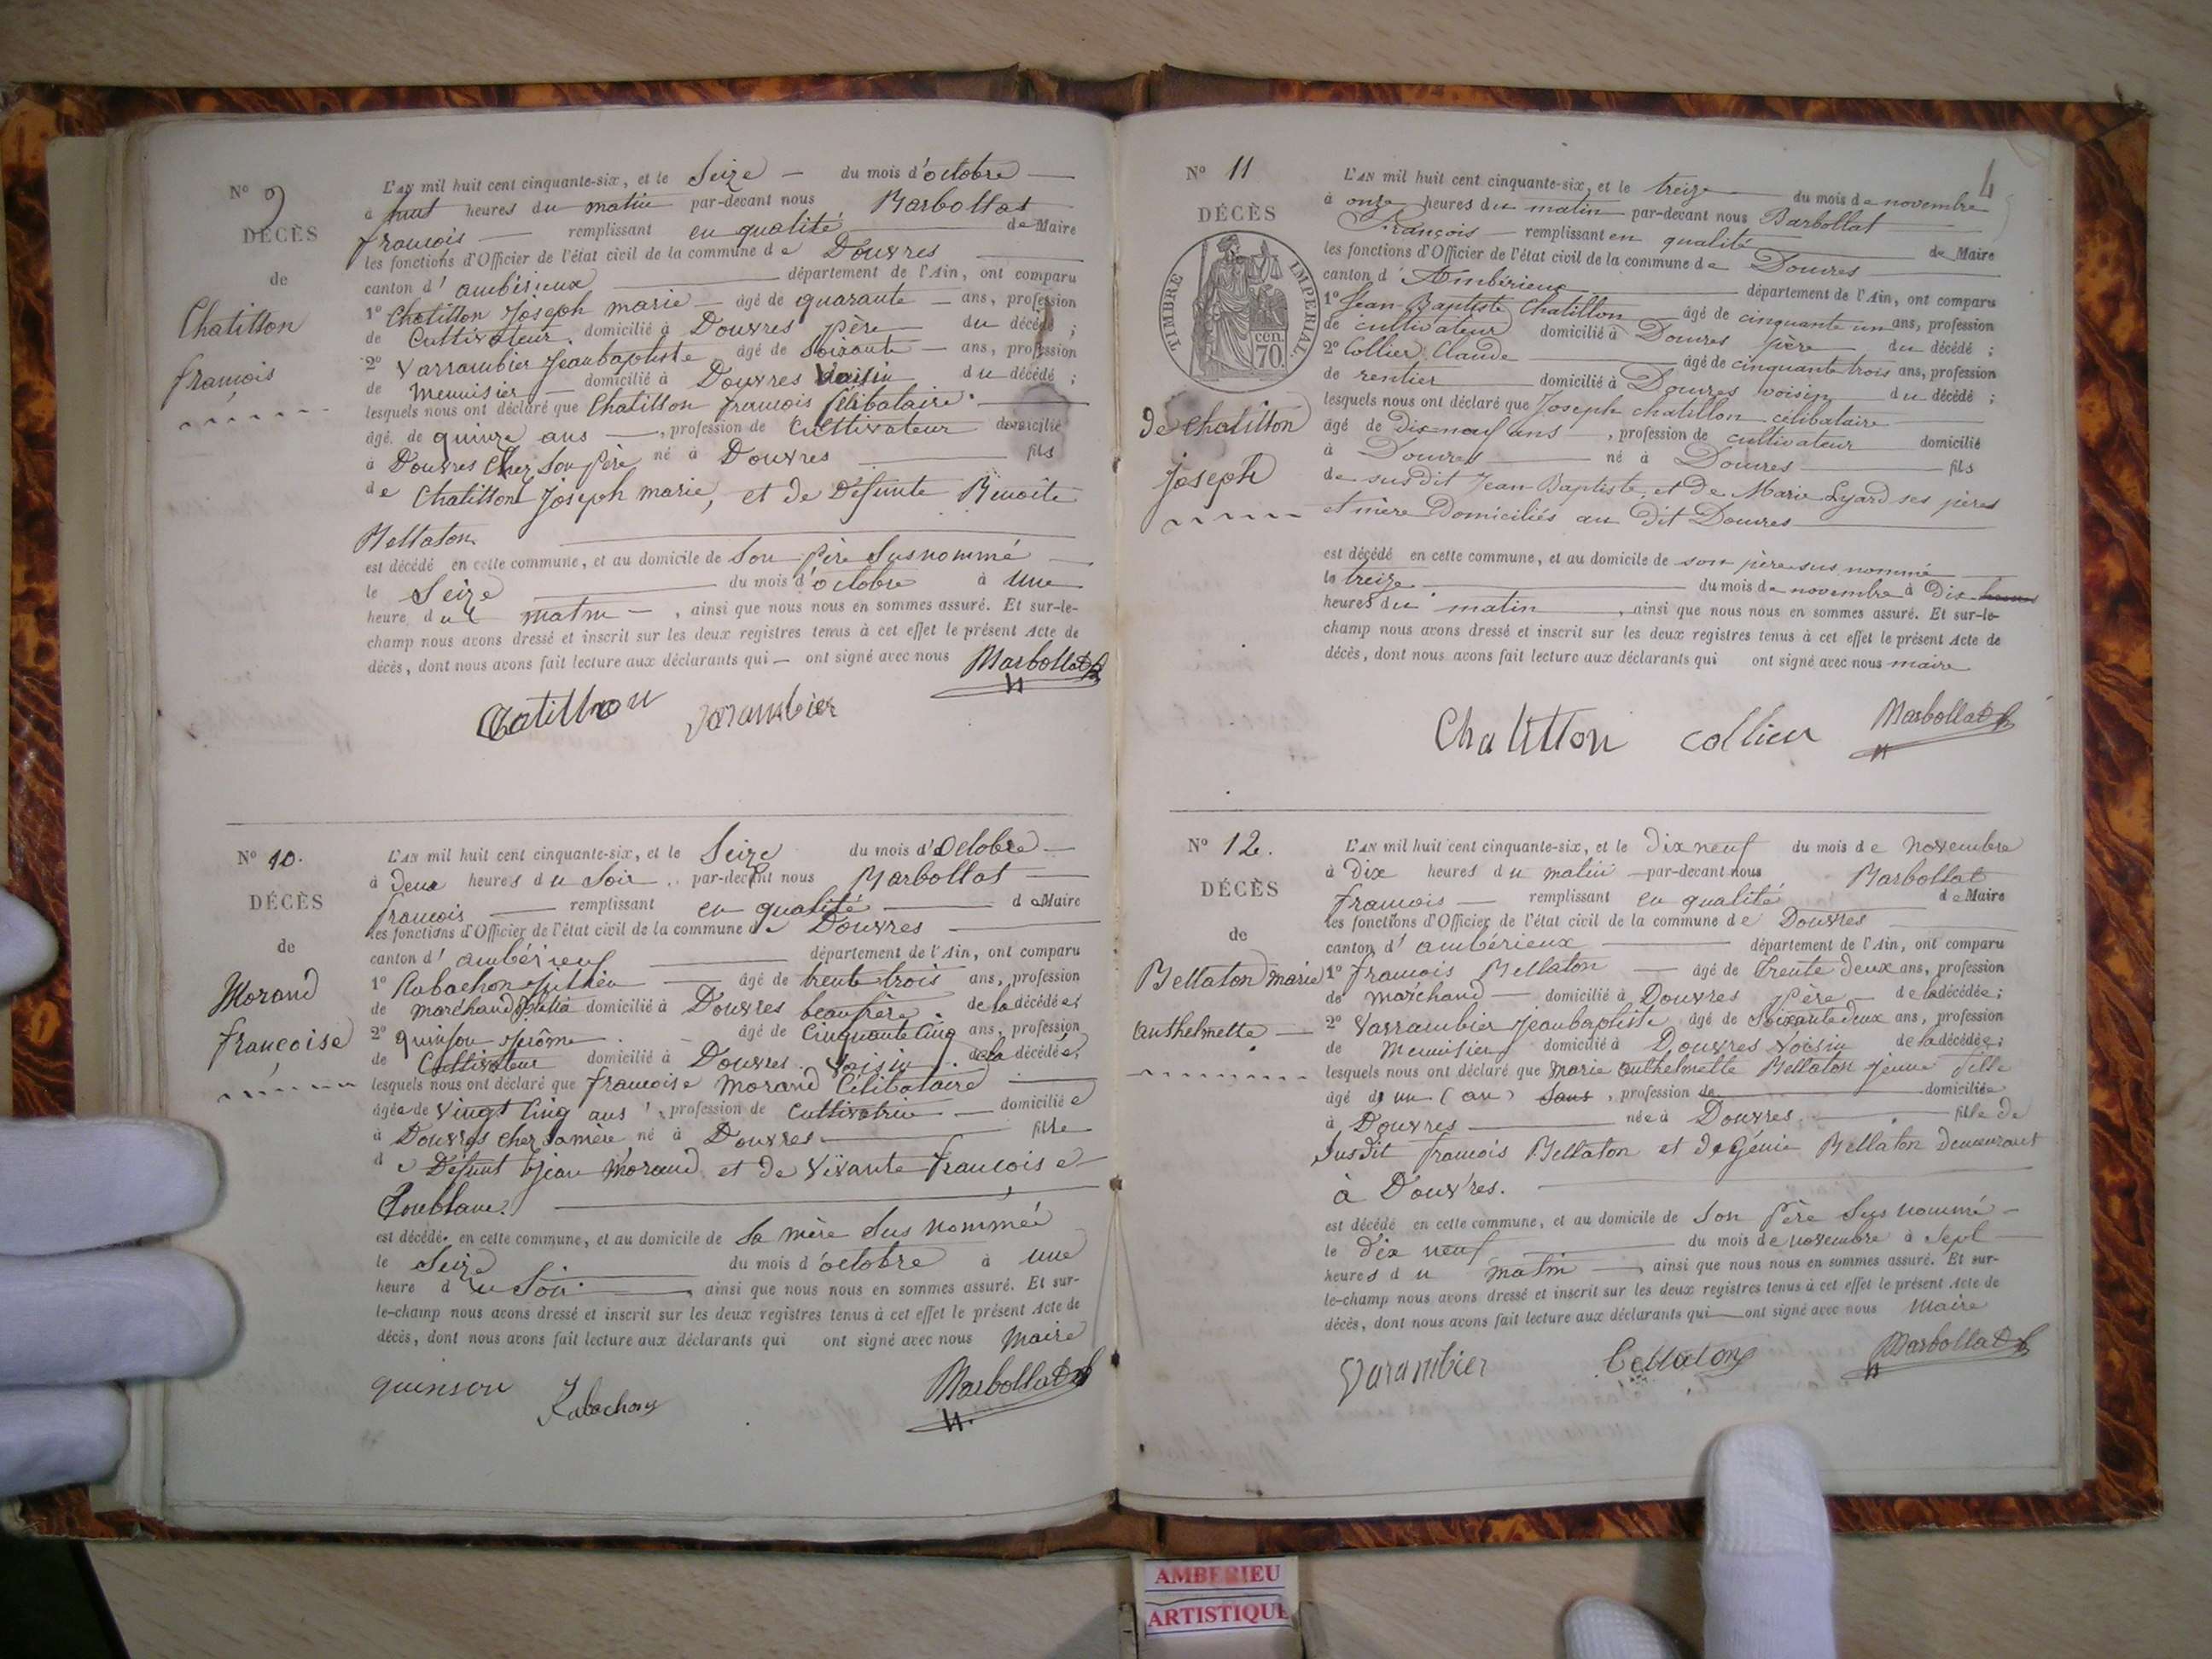 N° 9
DÉCÈS
de
Chatillon
françois
L'AN mil huit cent cinquante-six, et le Seize du mois d'octobre
à huit heures du matin par-devant nous Barbollat
françois remplissant en qualité de Maire
les fonctions d'Officier de l'état civil de la commune de Douvres
canton d'ambérieux département de l'Ain, ont comparu
1° Chatillon Joseph marie âgé de quarante ans, profession
de Cultivateur domicilié à Douvres père du décédé ;
2° Varrambier Jeanbaptiste âgé de soixante ans, profession
de Menuisier domicilié à Douvres Voisin du décédé ;
lesquels nous ont déclaré que Chatillon françois Célibataire
âgé de quinze ans , profession de Cultivateur domicilié
à Douvres Chez Son père né à Douvres fils
de Chatillon Joseph marie, et de Défunte Benoîte
Bellaton
est décédé en cette commune, et au domicile de Son père Susnommé
le Seize du mois d'octobre à une
heure du matin , ainsi que nous nous en sommes assuré. Et sur-le-
champ nous avons dressé et inscrit sur les deux registres tenus à cet effet le présent Acte de
décès, dont nous avons fait lecture aux déclarants qui ont signé avec nous Barbollat
Chatillon Varambier
N° 10.
DÉCÈS
de
Morand
françoise
L'AN mil huit cent cinquante-six, et le Seize du mois d'Octobre
à deux heures du Soir par-devant nous Barbollat
françois remplissant en qualité de Maire
les fonctions d'Officier de l'état civil de la commune de Douvres
canton d'ambérieux département de l'Ain, ont comparu
1° Rabachon Juthien âgé de trente trois ans, profession
de marchand domicilié à Douvres beaufrère de la décédée ;
2° quinson Jérôme âgé de Cinquante Cinq ans, profession
de Cultivateur domicilié à Douvres Voisin de la décédée ;
lesquels nous ont déclaré que françoise Morand Célibataire
âgée de Vingt Cinq ans , profession de Cultivatrice domiciliée
à Douvres Chez Sa mère né à Douvres fille
de Défunt Jean Morand et de Vivante françoise
est décédé en cette commune, et au domicile de Sa mère Sus nommée
le Seize du mois d'octobre à une
heure du Soir , ainsi que nous nous en sommes assuré. Et sur-
le-champ nous avons dressé et inscrit sur les deux registres tenus à cet effet le présent Acte de
décès, dont nous avons fait lecture aux déclarants qui ont signé avec nous Maire
quinson Rabachon Barbollat
4
N° 11
DÉCÈS
TIMBRE IMPERIAL
70 cen.
de Chatillon
joseph
L'AN mil huit cent cinquante-six, et le treize du mois de novembre
à onze heures du matin par-devant nous Barbollat
François remplissant en qualité de Maire
les fonctions d'Officier de l'état civil de la commune de Douvres
canton d'Ambérieux département de l'Ain, ont comparu
1° Jean-Baptiste Chatillon âgé de cinquante un ans, profession
de cultivateur domicilié à Douvres père du décédé ;
2° Collier Claude âgé de cinquante trois ans, profession
de rentier domicilié à Douvres voisin du décédé ;
lesquels nous ont déclaré que Joseph chatillon célibataire
âgé de Dix neuf ans , profession de cultivateur domicilié
à Douvres né à Douvres fils
de susdit Jean-Baptiste et de Marie Lyard ses pères
et mère Domiciliés au dit Douvres
est décédé en cette commune, et au domicile de son père sus nommé
le treize du mois de novembre à Dix heures
heures du matin , ainsi que nous nous en sommes assuré. Et sur-le-
champ nous avons dressé et inscrit sur les deux registres tenus à cet effet le présent Acte de
décès, dont nous avons fait lecture aux déclarants qui ont signé avec nous maire
Chatillon collier Barbollat
N° 12.
DÉCÈS
de
Bellaton marie
anthelmette
L'AN mil huit cent cinquante-six, et le Dix neuf du mois de novembre
à Dix heures du matin par-devant nous Barbollat
françois remplissant en qualité de Maire
les fonctions d'Officier de l'état civil de la commune de Douvres
canton d'ambérieux département de l'Ain, ont comparu
1° françois Bellaton âgé de Trente deux ans, profession
de Marchand domicilié à Douvres Père de la décédée ;
2° Varrambier Jeanbaptiste âgé de Soixante deux ans, profession
de Menuisier domicilié à Douvres Voisin de la décédée ;
lesquels nous ont déclaré que Marie anthelmette Bellaton jeune fille
âgé d'un (an) Sans , profession de domiciliée
à Douvres née à Douvres fille de
Susdit françois Bellaton et de génie Bellaton demeurant
à Douvres.
est décédé en cette commune, et au domicile de Son Père Sus nommé
le Dix neuf du mois de novembre à Sept
heures du matin , ainsi que nous nous en sommes assuré. Et sur-
le-champ nous avons dressé et inscrit sur les deux registres tenus à cet effet le présent Acte de
décès, dont nous avons fait lecture aux déclarants qui ont signé avec nous Maire
Varambier Bellaton Barbollat
AMBERIEU
ARTISTIQUE